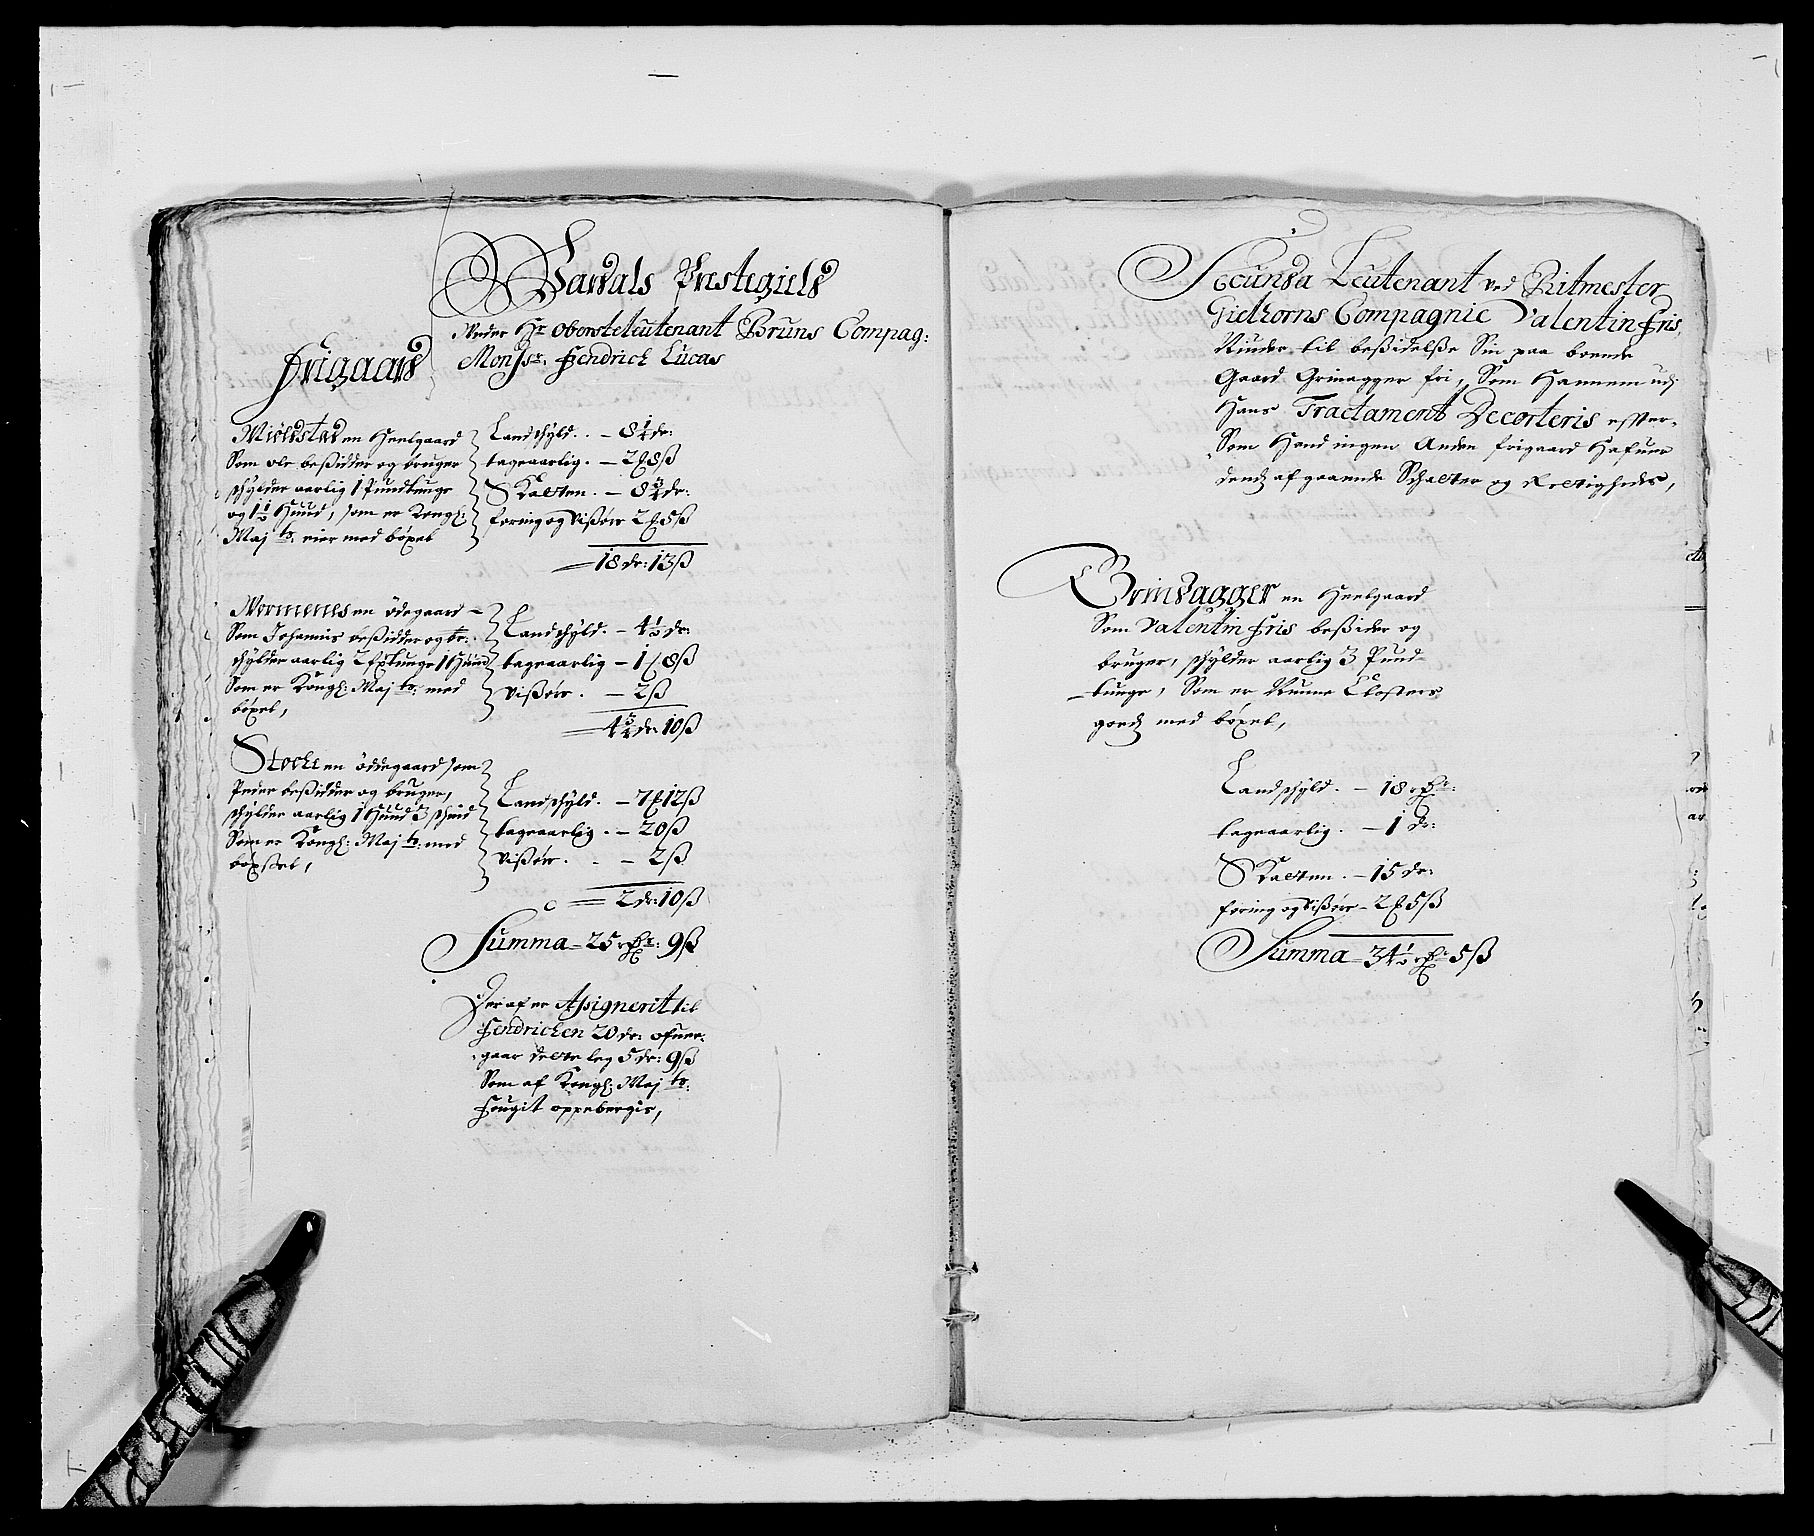 Vardals Prestegield
Under Hr Obersteleutenant Bruns Compag:
Monsr. Fendrich Lucas
Frigaard
Mielstad en Heelgaard
Som ole beßidder og bruger
schylder aarlig 1 Pundtunge
og 1½ Huud, som er Kongl:
Maj ts: eier med böxel
Landschyld. . – 8¼ dr:
tageaarlig. – 2 ℔ 8 ß
Skatten. – 8¾ dr:
foring og Vißöre 2 ℔ 5 ß
18 dr: 13 ß
en ödegaard
Som Johannis beßidder og br:
schylder aarlig 2 fxtunge 1 Huud
Som er Kongl: Maj ts: med
böxel,
Landschyld. – 4½ dr:
tageaarlig – 1 ℔ 8 ß
Vißöre. – 2 ß
4¾ dr: 10 ß
Stocke en öddegaard som
Peder beßidder og bruger,
schylder aarlig 1 Huud 3 schind
Som er Kongl: Maj ts: med
böxsel,
Landschyld. – 7 ℔ 12 ß
tageaarlig. – 20 ß
Vißöre. . – 2 ß
2 dr: 10 ß
Summa – 25 rdr: 9 ß
Der af er Assignerit til
Fendrichen 20 dr: ofuer-
gaar dette leg 5 dr: 9 ß
Som af Kongl: Maj ts:
Fougit oppebergis,
Secunda Leutenant ved Ritmester
Giethorns Compagnie Valentin Fris,
Niuder til beßidelße Sin paa boende
Gaard Grinagger fri, Som Hannem udj
Hans Tractament Decorteris effter-
Som Hand ingen Anden frigaard Hafuer
dend af gaaende Schatter og Rettigheder,
Grindagger en Heelgaard
Som Valentin Fris beßider og
bruger, schylder aarlig 3 Pund-
tunge, Som er Nunne Closters
goedz med böxel,
Landschyld. – 18 rdr:
tageaarlig. – 1 dr:
Skatten. – 15 dr:
foring og Vißöre – 2 ℔ 5 ß
Summa – 34½ rdr 5 ß